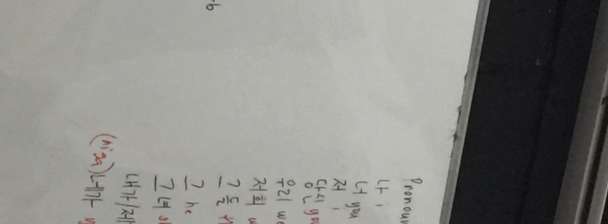 Pronoun
나 i
너 you
저 i
당신 you
우리 we
저희
그들
그 he
그녀
내가/제
(니가)네가